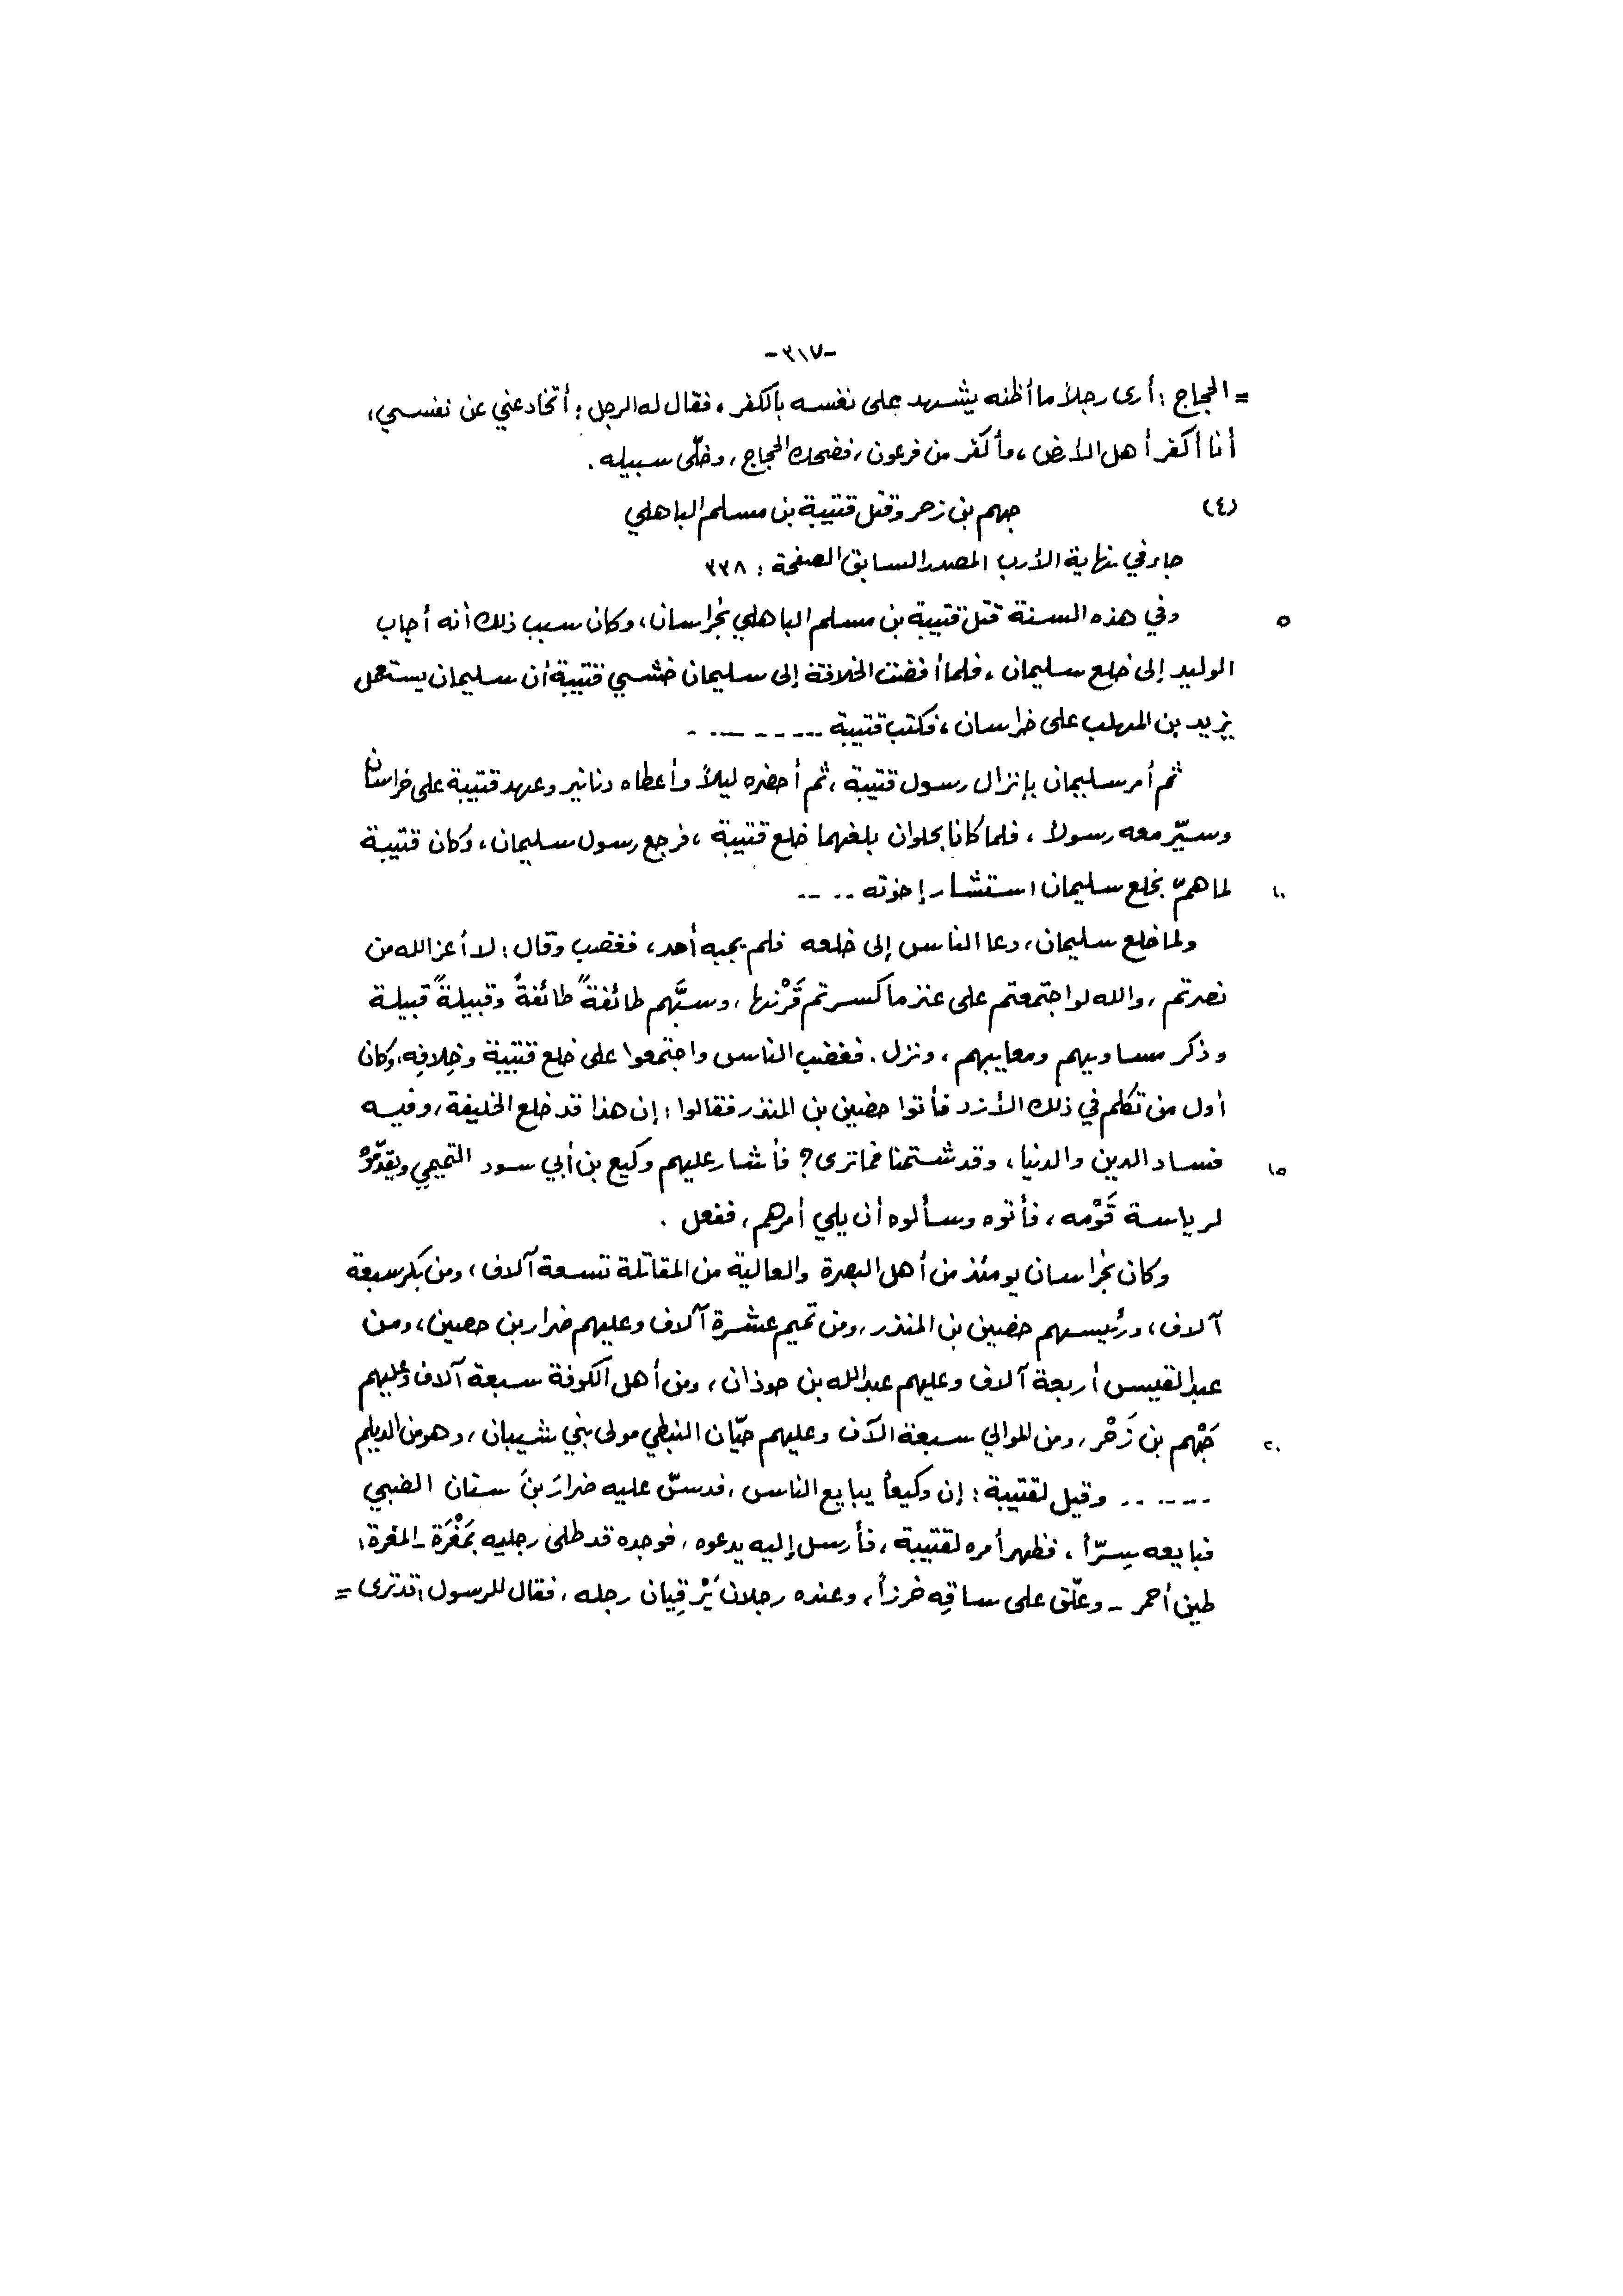 -٣١٧-
= الحجاج : أرى رجلاً ما أظنه يشهد على نفسه بالكفر ، فقال له الرجل : أتخادعني عن نفسي ،
أنا أكفر أهل الأرض ، وأكفر من فرعون ، فضحك الحجاج ، وخلّى سبيله .
(٤) جهم بن زحر وقتل قتيبة بن مسلم الباهلي
جاء في نهاية الأرب المصدر السابق الصفحة : ٣٣٨
٥ وفي هذه السنة قتل قتيبة بن مسلم الباهلي بخراسان ، وكان سبب ذلك أنه أجاب
الوليد إلى خلع سليمان ، فلما أفضت الخلافة إلى سليمان خشي قتيبة أن سليمان يستعمل
يزيد بن المهلب على خراسان ، فكتب قتيبة ........
ثم أمر سليمان بإنزال رسول قتيبة ، ثم أحضره ليلاً وأعطاه دنانير وعهد قتيبة على خراسان
وسيّر معه رسولاً ، فلما كانا بحلوان بلغهما خلع قتيبة ، فرجع رسول سليمان ، وكان قتيبة
١٠ لما همّ بخلع سليمان استشار إخوته ....
ولما خلع سليمان ، دعا الناس إلى خلعه فلم يجبه أحد ، فغضب وقال : لا أعز الله من
نصرتم ، والله لو اجتمعتم على عنز ما كسرتم قَرْنها ، وسبَّهم طائفةً طائفةً وقبيلةً قبيلة
وذكر مساويهم ومعايبهم ، ونزل . فغضب الناس واجتمعوا على خلع قتيبة وخِلافِه ، وكان
أول من تكلم في ذلك الأزد فأتوا حضين بن المنذر فقالوا : إن هذا قد خلع الخليفة ، وفيه
١٥ فساد الدين والدنيا ، وقد شتمنا فما ترى ؟ فأشار عليهم وكيع بن أبي سود التميمي ويقدّموْ
لرياسة قَوْمه ، فأتوه وسألوه أن يلي أمرهم ، ففعل .
وكان بخراسان يومئذ من أهل البصرة والعالية من المقاتلة تسعة آلاف ، ومن بكر سبعة
آلاف ، ورئيسهم حضين بن المنذر ، ومن تميم عشرة آلاف وعليهم ضرار بن حصين ، ومن
عبد القيس أربعة آلاف وعليهم عبد الله بن حوذان ، ومن أهل الكوفة سبعة آلاف وعليهم
٢٠ جَهْم بن زَحْر ، ومن الموالي سبعة آلاف وعليهم حيّان النبطي مولى بني شيبان ، وهو من الديلم
...... وقيل لقتيبة : إن وكيعاً يبايع الناس ، فدسّ عليه ضرارَ بنَ سنان الضبي
فبايعه سِرّاً ، فظهر أمره لقتيبة ، فأرسل إليه يدعوه ، فوجده قد طلى رجليه بمَغْرَة - المغرة :
طين أحمر - وعلّق على ساقِه خرزاً ، وعنده رجلان يَرْقِيان رجله ، فقال للرسول : قد ترى =